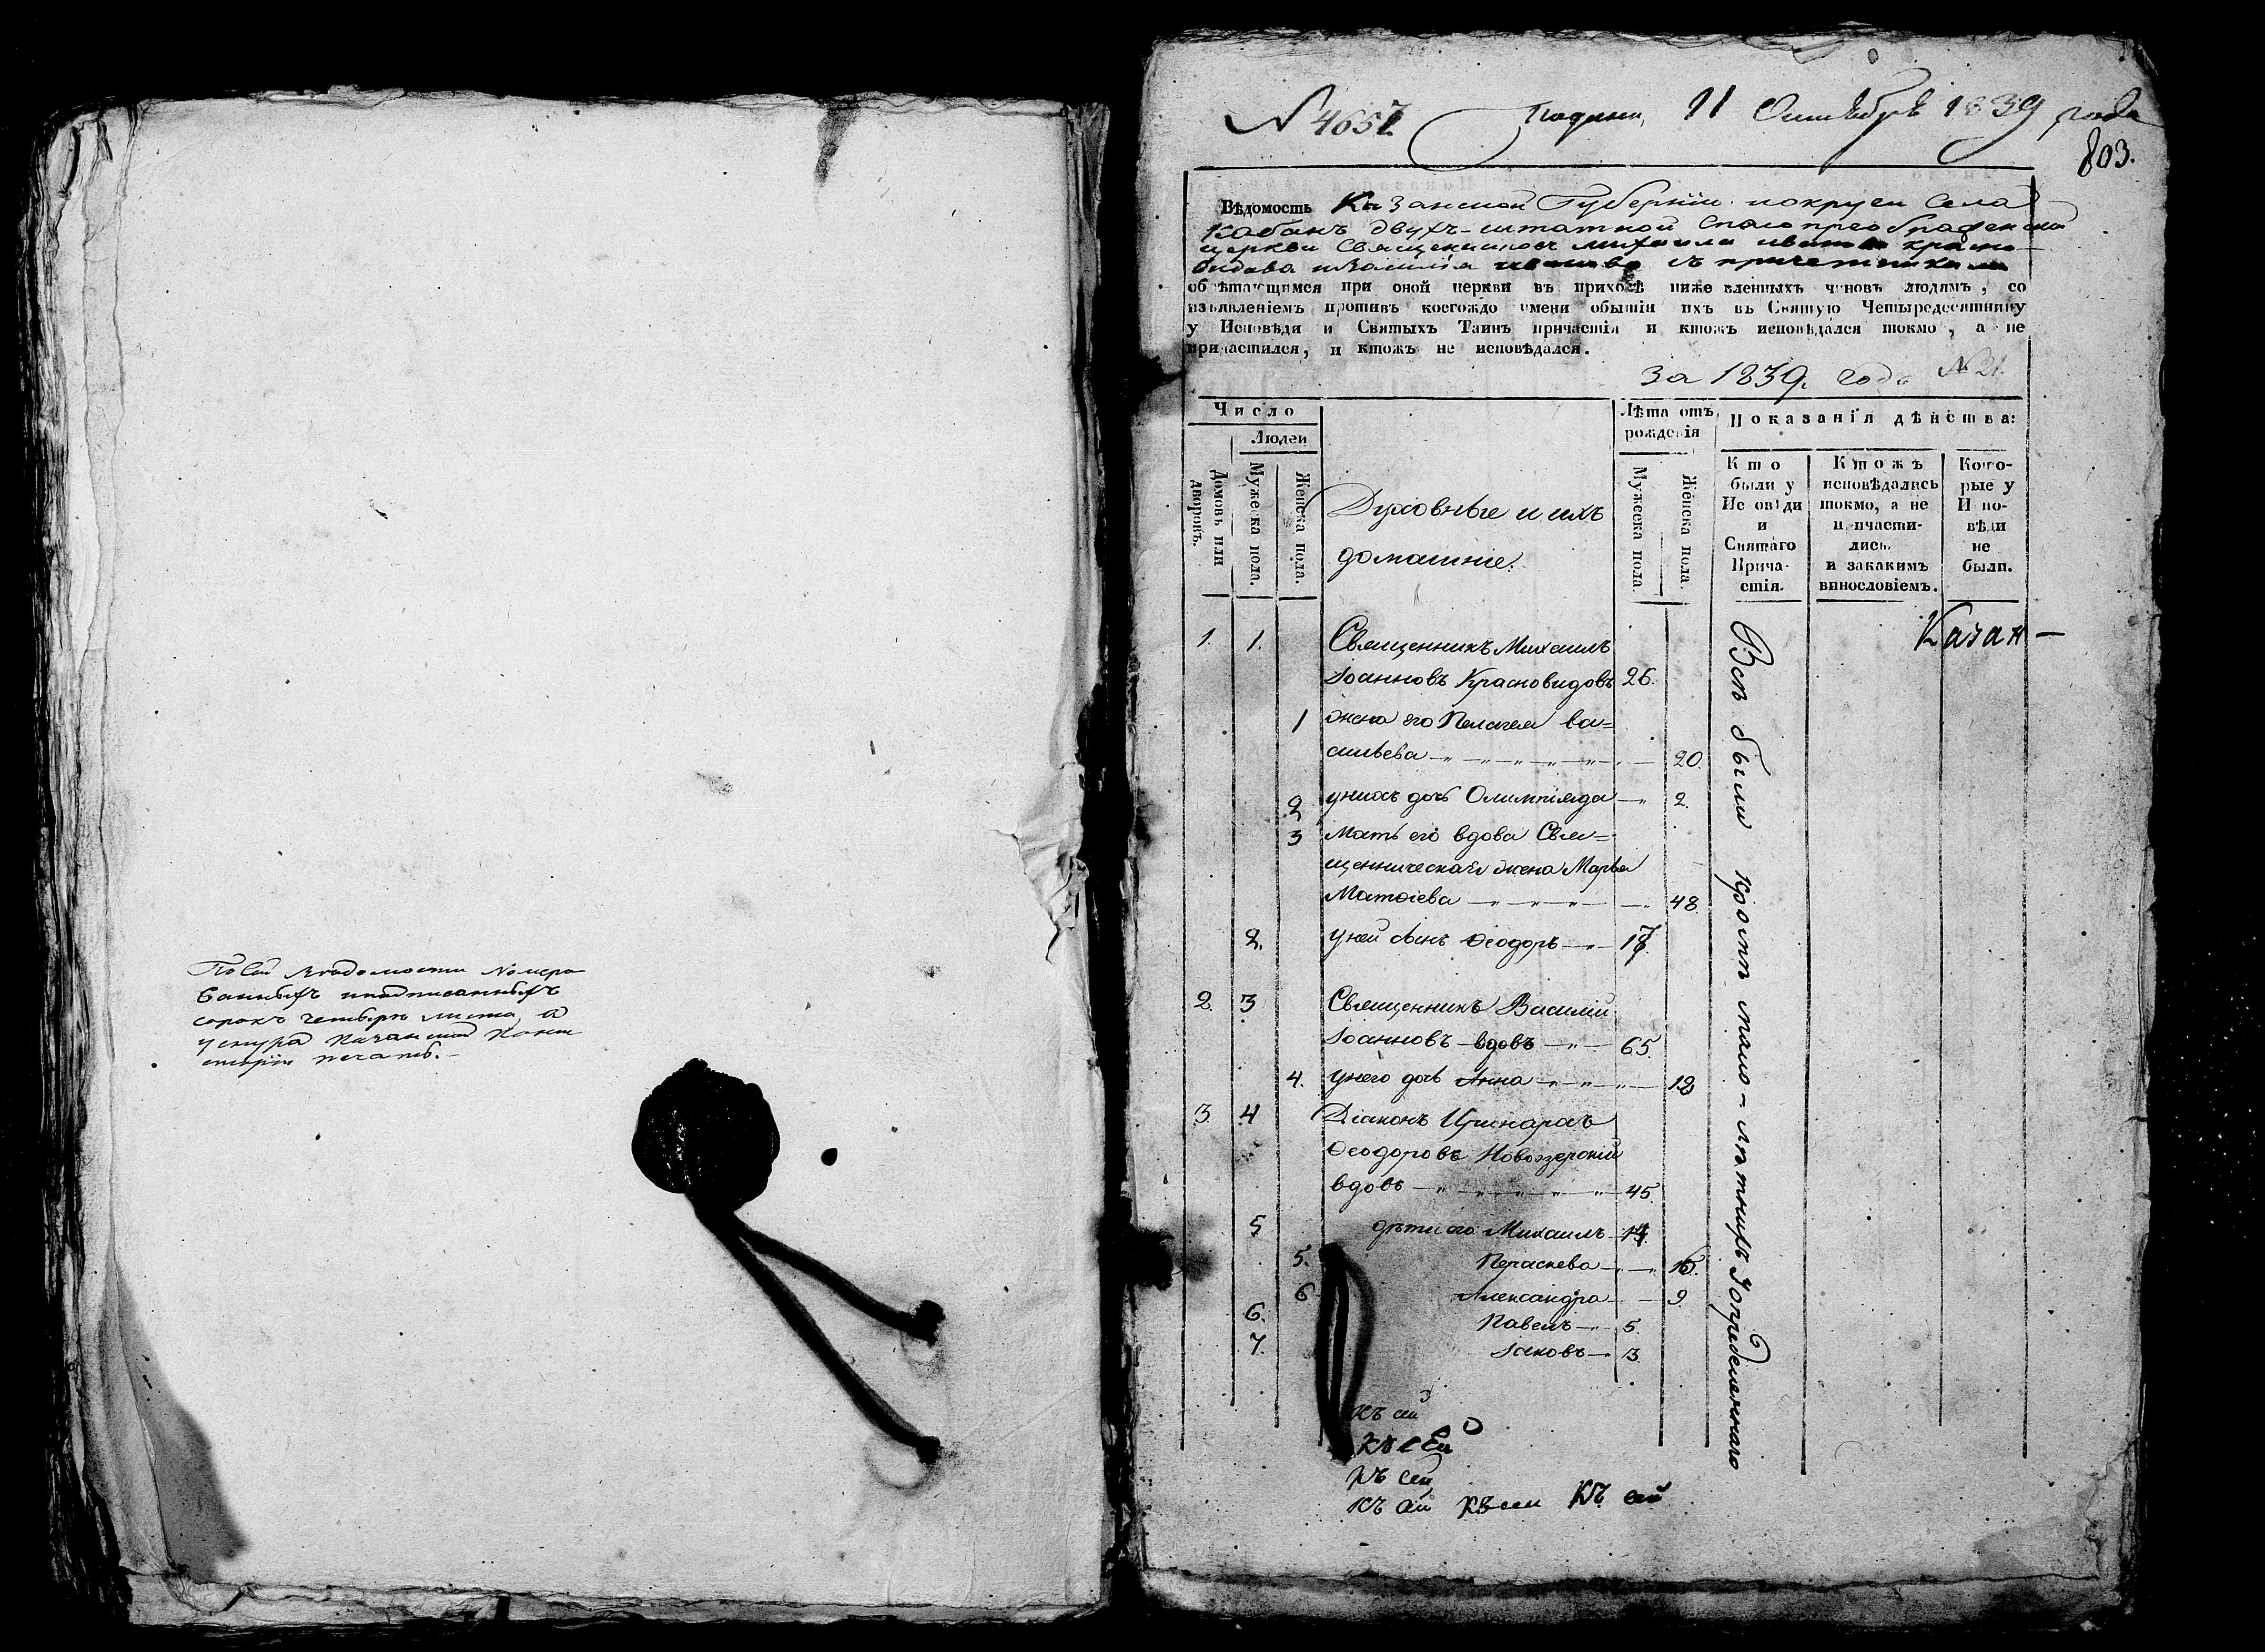 По сей Ведомости Номеро
ванныхъ и подписанныхъ
сорокъ четыре листа, а
у снура Казанской Конси
сторіи печать.
№ 4657
Подана 11 Октября 1839 года
803.
Вѣдомость Казанской Губерніи и округи Села
Кабанъ двухъ-штатной Спасопреображенской
церкви Священниковъ Михаила Красно-
видова и Василія съ причетниками
обрѣтающимся при оной церкви въ приходѣ ниже вленныхъ чиновъ людямъ, со
изъявленіемъ противъ коегождо имени обытіи ихъ въ Святую Четыредесятницу
у Исповѣди и Святыхъ Таинъ причастія и ктожъ исповѣдался токмо, а не
причастился, и ктожъ не исповѣдался.
за 1839. годъ № 21.
Число
Людей
Домовъ или дворовъ.
Мужеска пола.
Женска пола.
Духовные и ихъ
домашніе.
Лѣта отъ
рожденія
Мужеска пола.
Женска пола.
Показанія дѣйства:
Кто
были у
Исповѣди
и
Святаго
Прича-
стія.
Ктожъ
исповѣдались
токмо, а не
причасти-
лись.
и закакимъ
винословіемъ.
Кото-
рые у
Испо-
вѣди
не
были.
1. 1. Священникъ Михаилъ
Іоанновъ Красновидовъ 26.
1 жена его Пелагея Ва=
сильева 20.
2 у нихъ дочь Олимпіяда 2.
3 Мать его вдова Свя=
щенническая жена Марѳа
Матѳіева 48
2. у ней сынъ Ѳеодоръ 17
2. 3 Священникъ Василій
Іоанновъ вдовъ 65.
4. у него дочь Анна 12
3. 4 Діаконъ Иринархъ
Ѳеодоровъ Новоозерскій
вдовъ 45.
5 дѣти его Михаилъ 14
5. Параскева 16.
6 Александра 9.
6. Павелъ 5.
7. Іаковъ 3.
Всѣ были кромѣ мало-лѣтнихъ
Казан-
Къ сей
Къ сей
Къ сей
Къ сей Къ сей Къ сей